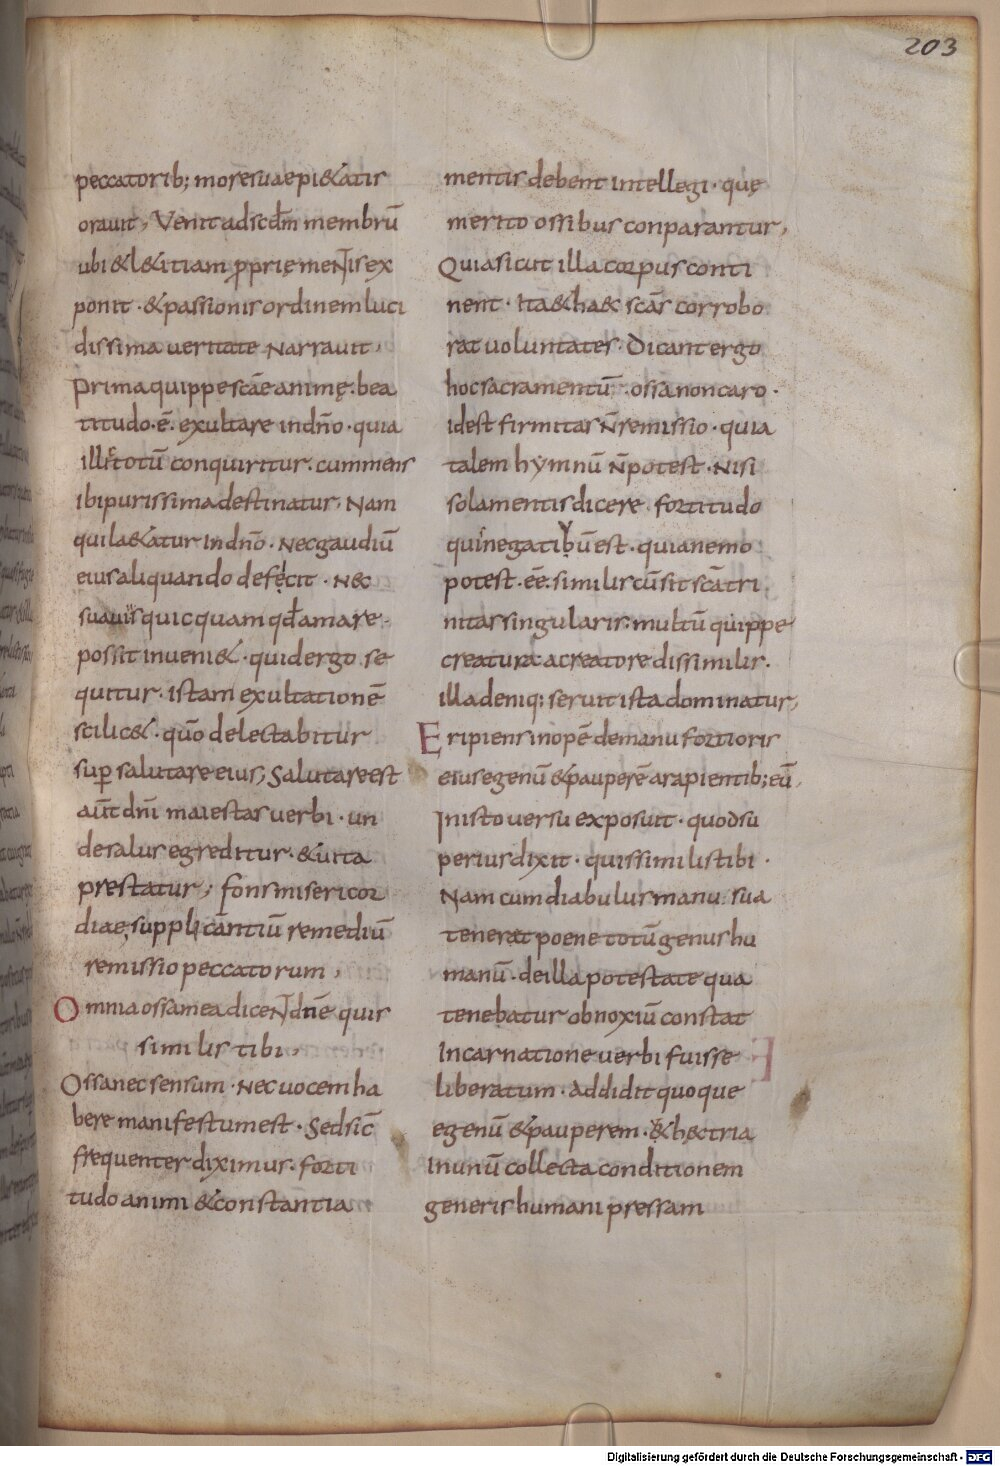 203
peccatorib; more suae pi&atis
orauit, Venit ad scd̄m membrū
ubi & l&itiam ꝓprię meNtis ex
ponit · & passionis ordinem luci
dissima ueritate Narrauit,
Prima quippe scāe animę · bea
titudo · ē · exultare in dnō · quia
illi totū conquiritur · cum mens
ibi purissima destinatur, Nam
qui la&atur In dnō · Nec gaudiū
eius aliquando defecit · Nec
suauius quicquam qd̄ amare ·
possit inueni& · quid ergo se
quitur · istam exultationē
scilic& · quō delectabitur
sup̄ salutare eius, Salutare est
aūt dnī maiestas uerbi · un
de salus egreditur · & uita
prestatur, fons misericor
diae, supplicāntiū remediū
remissio peccatorum,
Omnia ossa mea diceNt dnē quis
similis tibi,
Ossa nec sensum · Nec uocem ha
bere manifestum est · Sed sic̄
frequenter diximus · forti
tudo animi & constantia
mentis debent intellegi · quę
merito ossibus conparantur,
Quia sicut illa corpus conti
nent · Ita & ha& scās corrobo
rat uoluntates · Dicant ergo
hoc sacramentū · ossa non caro ·
id est firmitas N̄ remissio · quia
talem hymnū n̄ potest · Nisi
sola mentis dicere fortitudo
qui negatiuū est · quia nemo
potest · eē · similis cū sit scā tri
nitas singularis · multū quippe
creatura a creatore dissimilis ·
illa deniq; seruit ista dominatur,
Eripiens inopē de manu fortioris
eius egenū & pauperē a rapientib; eū,
In isto uersu exposuit · quod su
perius dixit · quis similis tibi ·
Nam cum diabulus manu sua
tenerat poene totū genus hu
manū · de illa potestate qua
tenebatur obnoxiū constat
Incarnatione uerbi fuisse
liberatum · addidit quoque
egenū & pauperem · & hec tria
in unū collecta conditionem
generis humani pressam
Digitalisierung gefördert durch die Deutsche Forschungsgemeinschaft - DFG